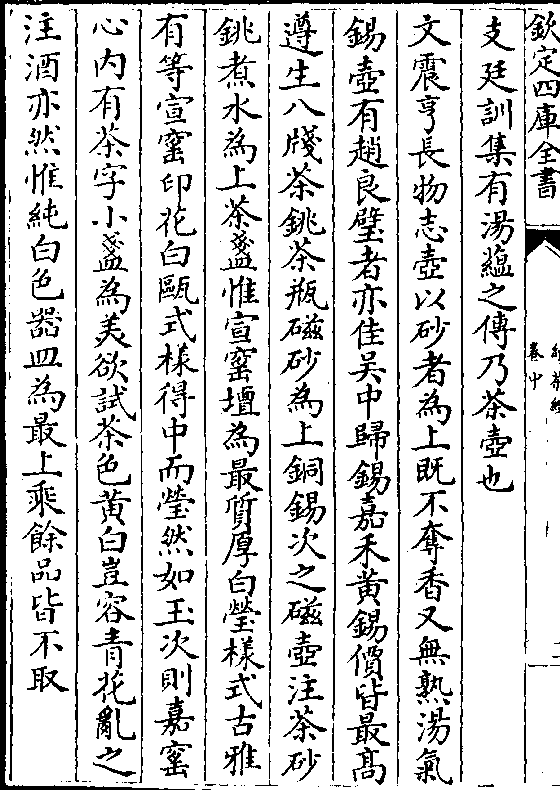 欽定四庫全書
續茶經
卷中
支廷訓集有湯蘊之傳乃茶壺也
文震亨長物志壺以砂者為上既不奪香又無熟湯氣
錫壺有趙良璧者亦佳吳中歸錫嘉禾黃錫價皆最高
遵生八牋茶銚茶瓶磁砂為上銅錫次之磁壺注茶砂
銚煮水為上茶盞惟宣窰壇為最質厚白瑩樣式古雅
有等宣窰印花白甌式樣得中而瑩然如玉次則嘉窰
心內有茶字小盞為美欲試茶色黃白豈容青花亂之
注酒亦然惟純白色器皿為最上乘餘品皆不取